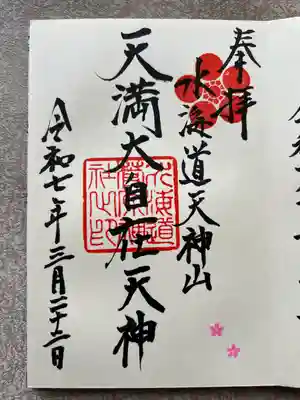 奉拝
水海道天神山
天満大自在天神
水海道
社之印
令和七年三月二十二日